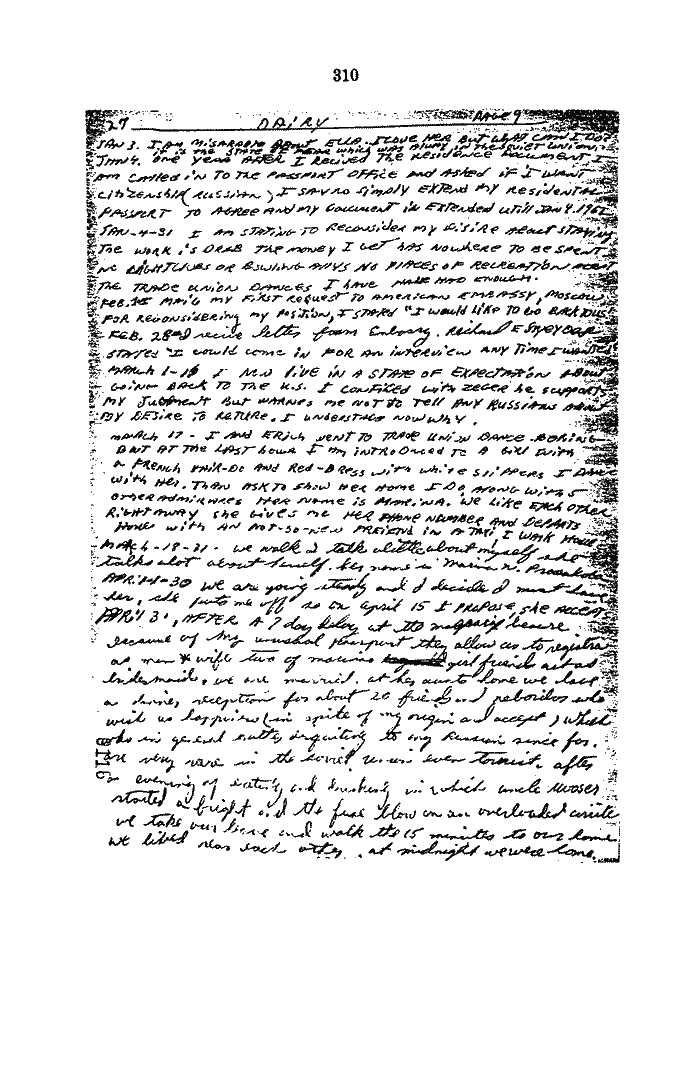 310
27 DAIRY PAGE 9
JAN 3. I AM MISARABLE ABOUT ELLA. I LOVE HER BUT WHAT CAN I DO?
IT IS THE STATE OF FEAR WHICH WAS ALWAYS IN THE SOVIET UNION.
JAN 4. ONE YEAR AFTER I RECIVED THE RESIDENCE DOCUMENT I
AM CALLED IN TO THE PASSPORT OFFICE AND ASKED IF I WANT
CITIZENSHIP (RUSSIAN) I SAY NO SIMPLY EXTEND MY RESIDENTAL
PASSPORT TO AGREE AND MY DOCUMENT IS EXTENDED UTILL JAN 4. 1962
JAN-4-31 I AM STATING TO RECONSIDER MY DISIRE ABOUT STAYING
THE WORK IS DRAB THE MONEY I GET HAS NOWHERE TO BE SPENT.
NO NIGHTCLUBS OR BOWLING ALLYS NO PLACES OF RECREATION ACEPT
THE TRADE UNION DANCES I HAVE HAD ENOUGH.
FEB. 1st MAKE MY FIRST REQUEST TO AMERICAN EMBASSY, MOSCOW
FOR RECONSIDERING MY POSITION, I STATED "I WOULD LIKE TO GO BACK TO US.
FEB. 28th I recive letter from Embassy. Richard E Snyder
STATED "I COULD COME IN FOR AN INTERVIEW ANY TIME I WANTED
MARCH 1-16 I NOW LIVE IN A STATE OF EXPECTATION ABOUT
GOING BACK TO THE U.S. I CONFIDED WITH ZEGER HE SUPPORTS
MY JUDGMENT BUT WARNES ME NOT TO TELL ANY RUSSIANS ABOUT
MY DESIRE TO RETURE. I UNDERSTAND NOW WHY.
MARCH 17 - I AND ERICH WENT TO TRADE UNION DANCE. BORING
BUT AT THE LAST HOUR I AM INTRODUCED TO A GIRL WITH
A FRENCH HAIR-DO AND RED-DRESS WITH WHITE SLIPPERS I DANCE
WITH HER. THAN ASK TO SHOW HER HOME I DO, ALONG WITH 5
OTHER ADMIRARES HER NAME IS MARINA. WE LIKE EACH OTHER
RIGHT AWAY SHE GIVES ME HER PHONE NUMBER AND DEPARTS
HOME WITH AN NOT-SO-NEW FREIEND IN A TAXI I WALK HOME.
MARCH-18-31- we walk I talk a little about myself she
talks alot about herself. her name is Marina N. Prosakoba
APR: 1st-30 We are going steady and I decide I must have
her, she puts me off so on april 15 I PROPOSE, SHE ACCEPTS
APRIL 31, AFTER A 7 day delay at the beaure
because of my unusual passport they allow us to registra
as man & wife two of marinas girl friends act as
bridesmaids. we are married. at her aunts home we have
a dinner reception for about 20 friends and neboribos who
wish us happiness (in spite of my origin and accept ) which
was in general rather disquiting to any Russian since for.
are very rare in the soviet union even tourist. after
an evening of eating and drinking in which uncle wooser
started a fright and the fuse blow on an overloaded circite
we take our leave and walk the 15 minutes to our home.
We lived near each other, at midnight we were home.